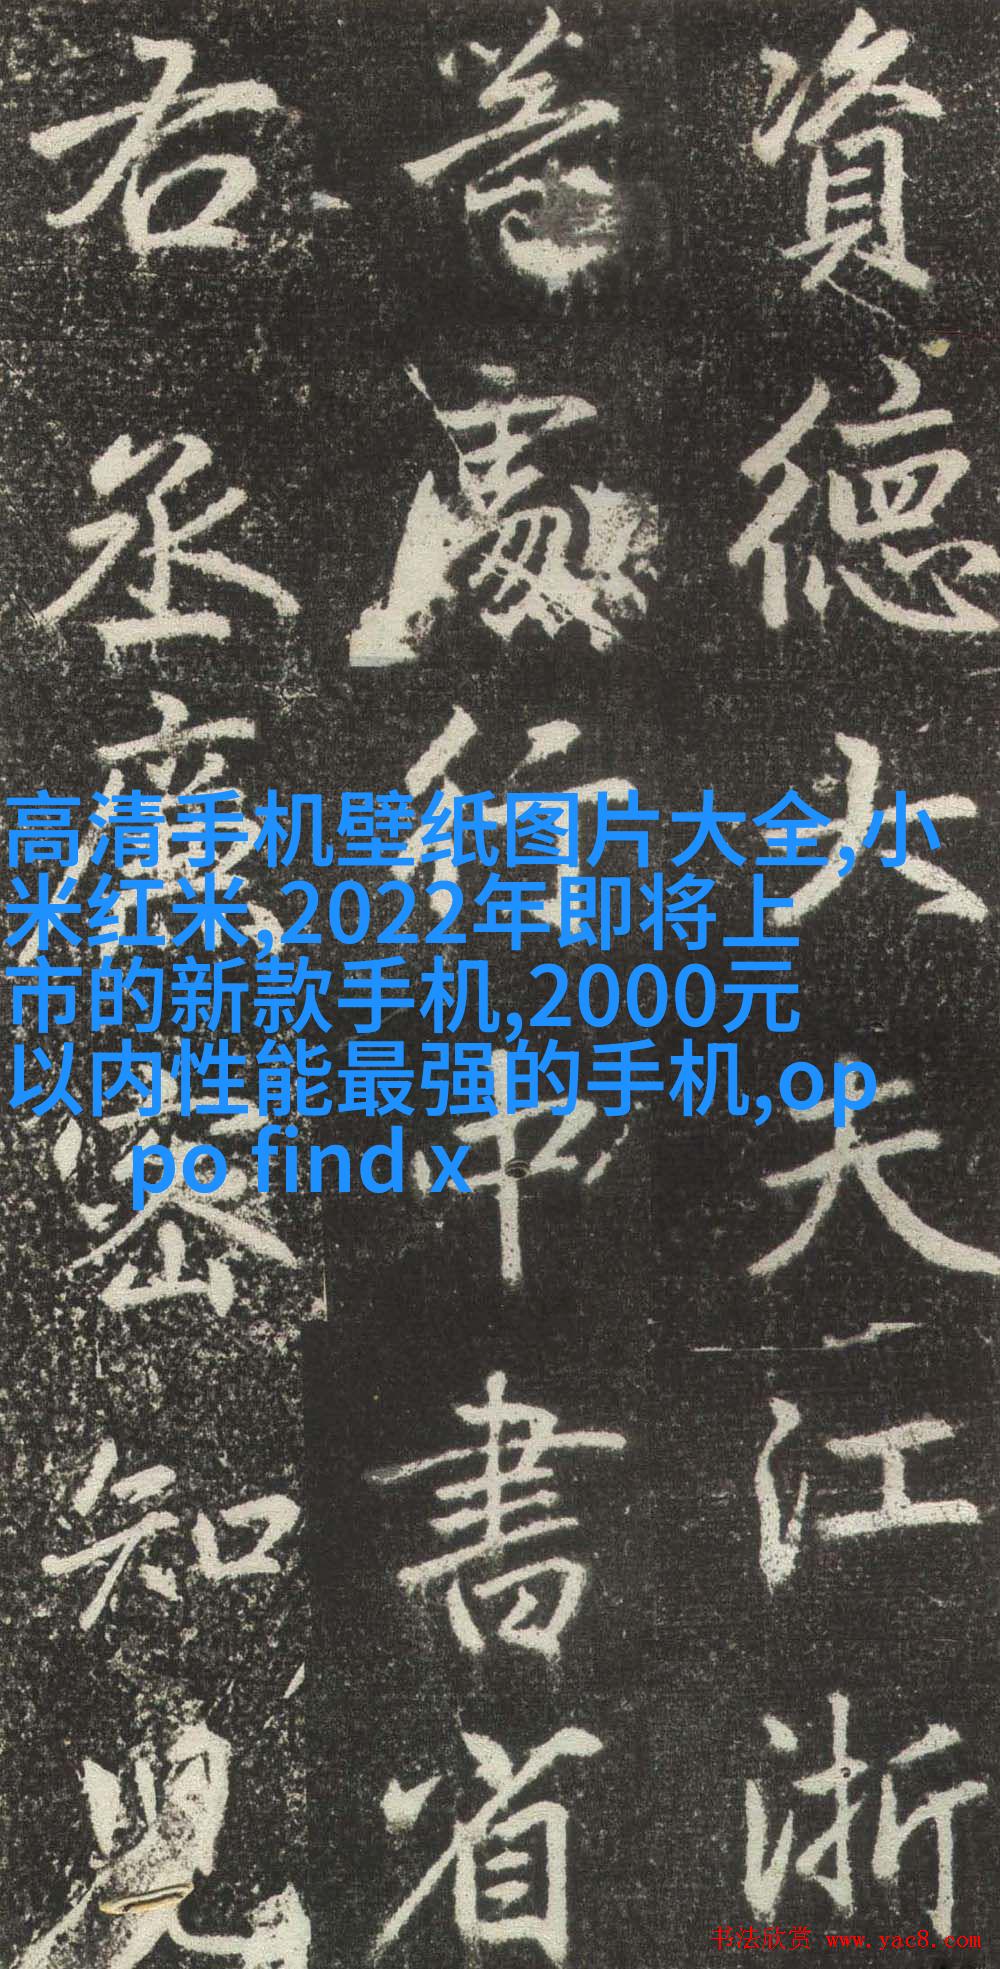 資德大夫江浙
等處行中書省
右丞密知
高清手机壁纸图片大全,小
米红米,2022年即将上
市的新款手机,2000元
以内性能最强的手机,op
po find x
书法欣赏 www.yac8.com